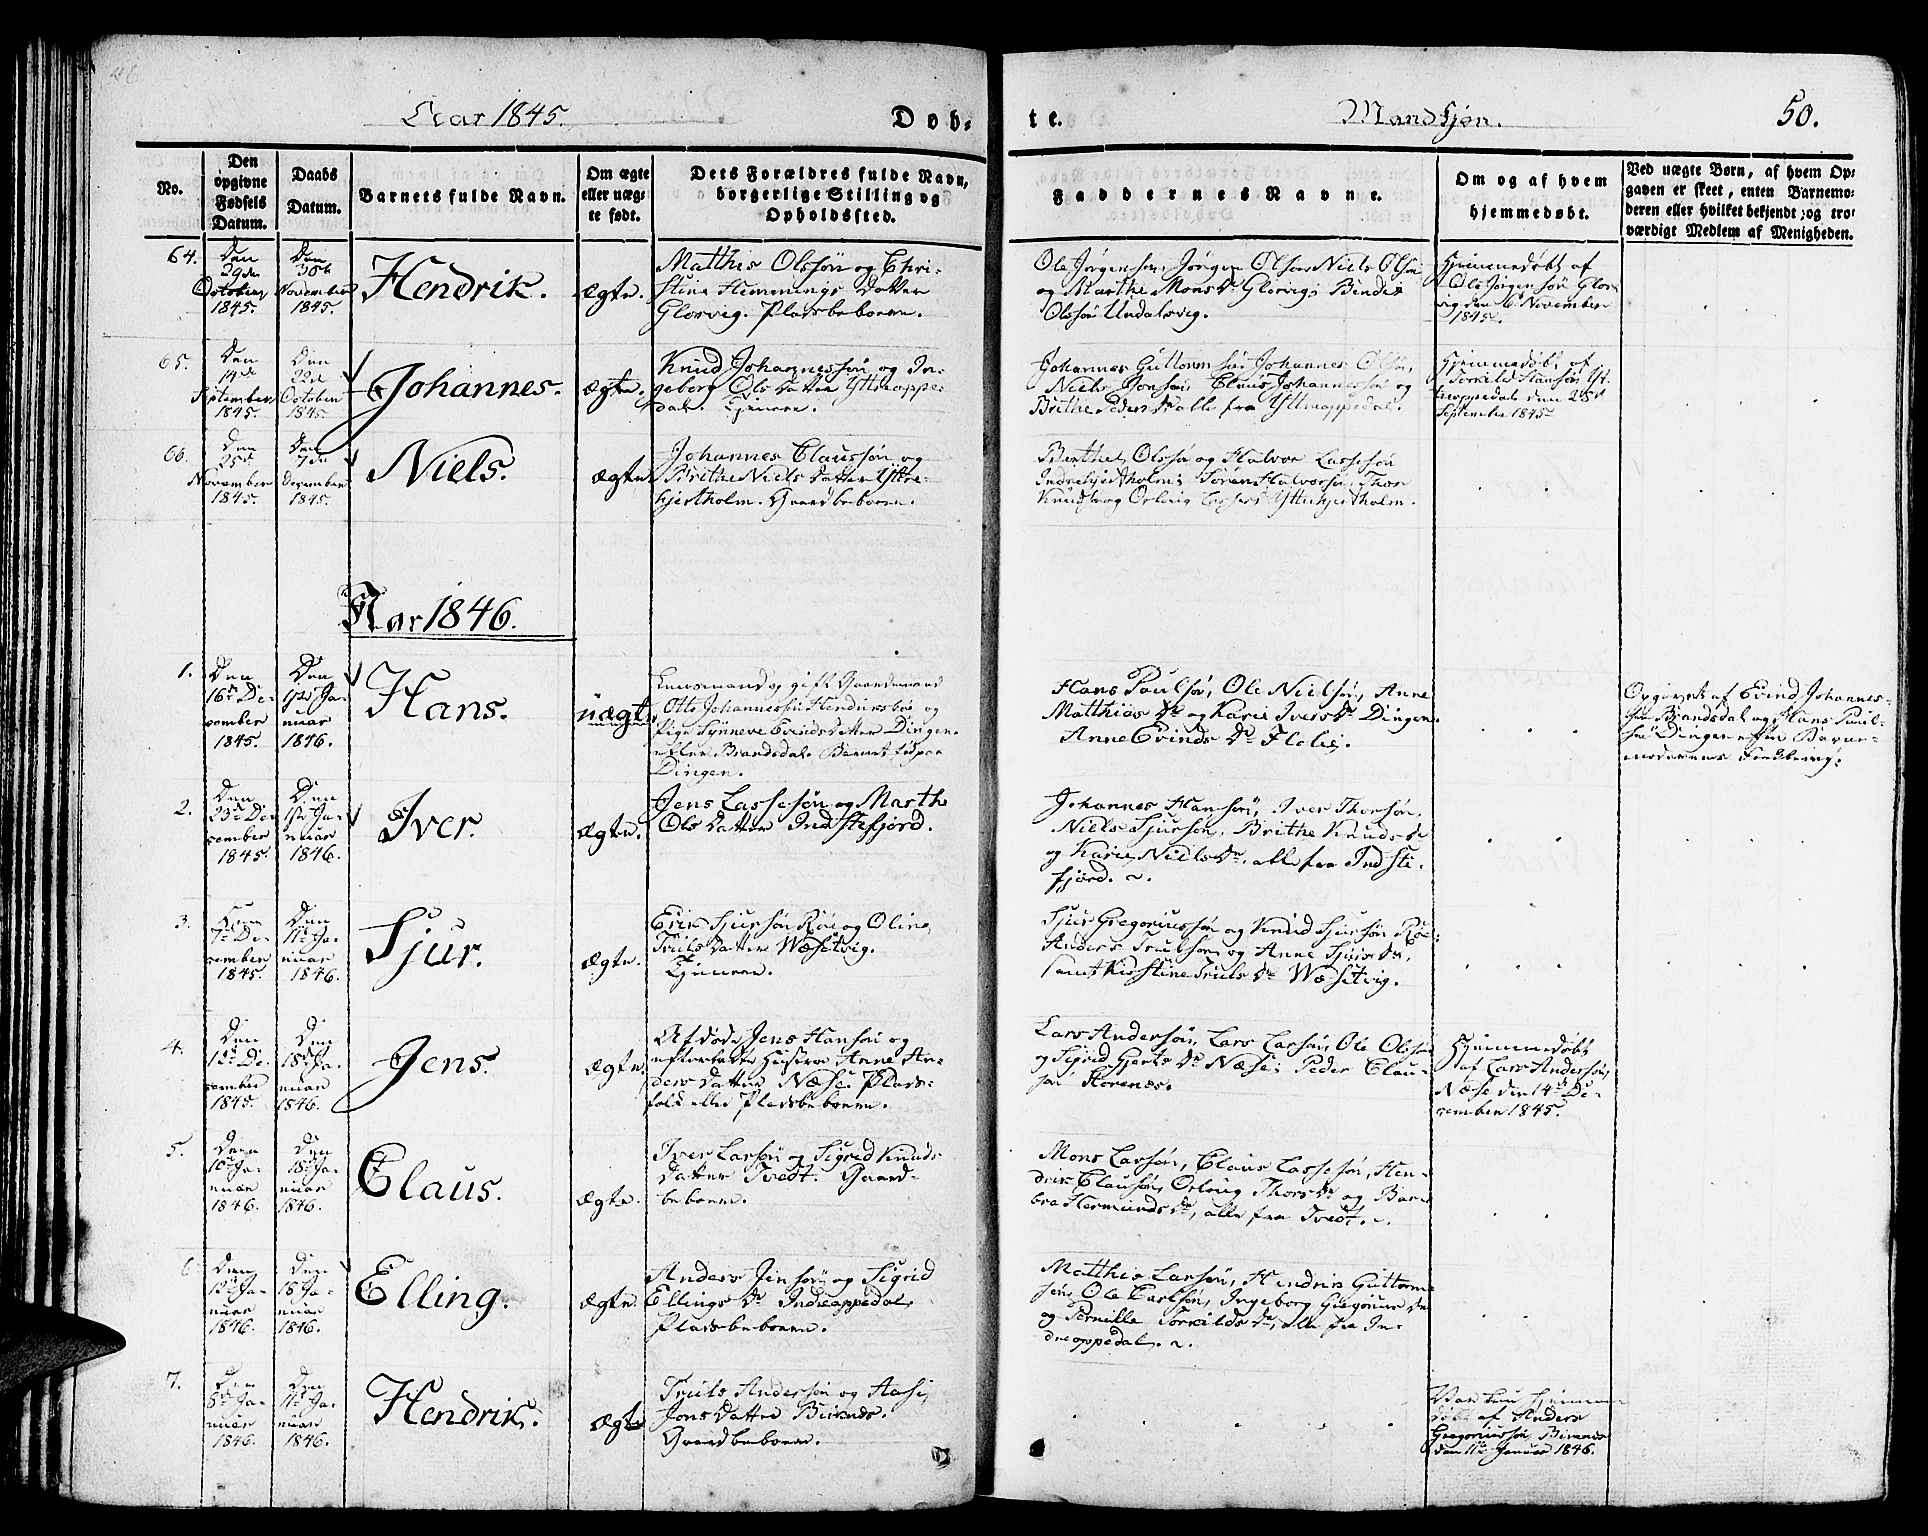 46
Aar 1845.
Döb-
te.
Mandkjøn.
50.
No.
Den
opgivne
Fødsels
Datum.
Daabs
Datum.
Barnets fulde Navn.
Om ægte
eller uæg-
te født.
Dets Forældres fulde Navn,
borgerlige Stilling og
Opholdssted.
Faddernes Navne.
Om og af hvem
hjemmedøbt.
Ved uægte Børn, af hvem Op-
gaven er skeet, enten Barnemo-
deren eller hvilket bekjendt, og tro-
værdigt Medlem af Menigheden.
64.
Den
29de
October
1845.
Den
30te
November
1845.
Hendrik.
ægte.
Matthis Olssøn og Chri-
stine Hemmings Datter
Glorvig. Pladsbeboere.
Ole Jørgensøn, Jørgen Olsøn, Niels Olsøn
og Marthe Monsdr Glorvig; Bendix
Olssøn Undalsvig.
Hjemmedøbt af
Ole Jørgensøn Glor-
vig den 6te November
1845.
65.
Den
14de
September
1845.
Den
22de
October
1845.
Johannes.
ægte.
Knud Johannessøn og In-
geborg Ols Datter Yttreoppe-
dal.
Johannes Guttormsøn, Johannes Olsøn,
Niels Jonsøn, Claus Johannessøn og
Brithe Pedersdr alle fra Yttreoppedal.
Hjemmedøbt af
Torkild Hansøn Yt-
treoppedal den 28de
September 1845.
66.
Den
25de
November
1845.
Den
7de
December
1845.
Niels.
ægte
Johannes Claussøn og
Brithe Niels Datter Yttre-
hjertholm. Gaardbeboere.
Berthel Olssøn og Halvor Lassesøn
Indrehjertholm; Søren Halvorsøn, Thor
Knudsøn og Lassesdr Yttrehjertholm.
Aar 1846.
1.
Den
16de De-
cember
1845.
Den
Ja-
nuar
1846.
Hans.
uægte
og gift Gaardmand
Otte Johannessøn og
Pige Synneve Einds Datter Dingen
eller Brandsdal. Barnet født paa
Dingen.
Hans Poulsøn, Ole Nielsøn, Anne
Matthiasdr og Karie Iversdr Dingen.
Anne Evindsdr Flolie.
Opgivet af Evind Johannes-
søn Brandsdal og Hans Poul-
søn Dingen efter Barne-
moderens
2.
Den
23de De-
cember
1845.
Den
Ja-
nuar
1846.
Iver.
ægte.
Jens Lassesøn og Marthe
Ols Datter Indstefjord.
Johannes Hansøn, Iver Thorsøn,
Niels Sjursøn, Brithe Knudsdr
og Karie Nielsdr, alle fra Indste-
fjord.
3.
Den
7de De-
cember
1845.
Den
11te Ja-
nuar
1846.
Sjur.
ægte.
Erik Sjursøn Røe og Oline
Truls Datter Wæsetvig.
Sjur Gregoriussøn og Knud Sjursøn Røe
Anders Trulsøn og Anne Sjursdr,
samt Kirstine Trulsdr Wæsetvig.
4.
Den
12te De-
cember
1845.
Den
18de Ja-
nuar
1846.
Jens.
ægte.
Afdøde Jens Hansøn og
efterladte Hustrue Anne An-
ders Datter Næse. Plads-
folk eller Pladsbeboere.
Lars Andersøn, Lars Larsøn, Ole Olssøn
og Sigrid Gjertsdr Næse; Peder Clau-
søn Horenæs.
Hjemmedøbt
af Lars Andersøn
Næse den 14de De-
cember 1845.
5.
Den
10de Ja-
nuar
1846.
Den
18de Ja-
nuar
1846.
Claus.
ægte.
Iver Larsøn og Sigrid Knuds
Datter Tvedt. Gaard-
beboere.
Mons Larsøn, Claus Lassesøn, Hen-
drik Clausøn, Thorsdr og Bar-
bra Hermundsdr, alle fra Tvedt.
6
Den
12te Ja-
nuar
1846.
Den
18de Ja-
nuar
1846.
Elling.
ægte.
Anders Jensøn og Sigrid
Ellingsdr Indreoppedal
Pladsbeboere.
Matthis Larsøn, Hendrik Guttorm-
søn, Ole Carlsøn, Ingeborg Gregoriusdr
og Pernille Torkildsdr, alle fra In-
dreoppedal.
7.
Den
8de Ja-
nuar
1846.
Den
11te Ja-
nuar
1846.
Hendrik.
ægte
Truls Andersøn og Aase
Jons Datter Birknæs.
Gaardbeboere.
Var kun hjemme-
døbt af Anders
Gregoriussøn Birknæs
den 11te Januar 1846.